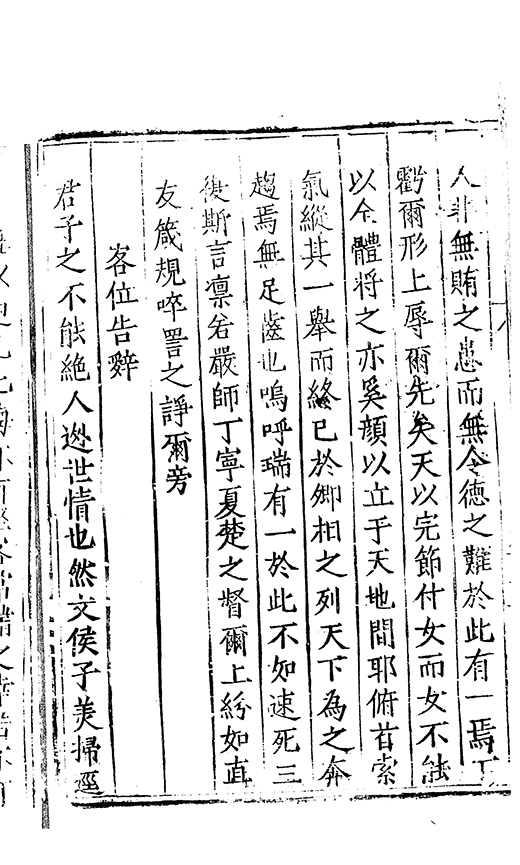 人非無賄之患而無令德之難於此有一焉下
虧爾形上辱爾先矣天以完節付女而女不能
以全體將之亦奚顔以立于天地間耶俯首索
氣縱其一舉而終已於卿相之列天下為之奔
趨焉無足齒也嗚呼瑞有一於此不如速死三
復斯言凛若嚴師丁寧夏楚之督爾上紛如直
友箴規啐詈之諍爾旁
客位告辭
君子之不能絶人迯世情也然文侯子美掃逕